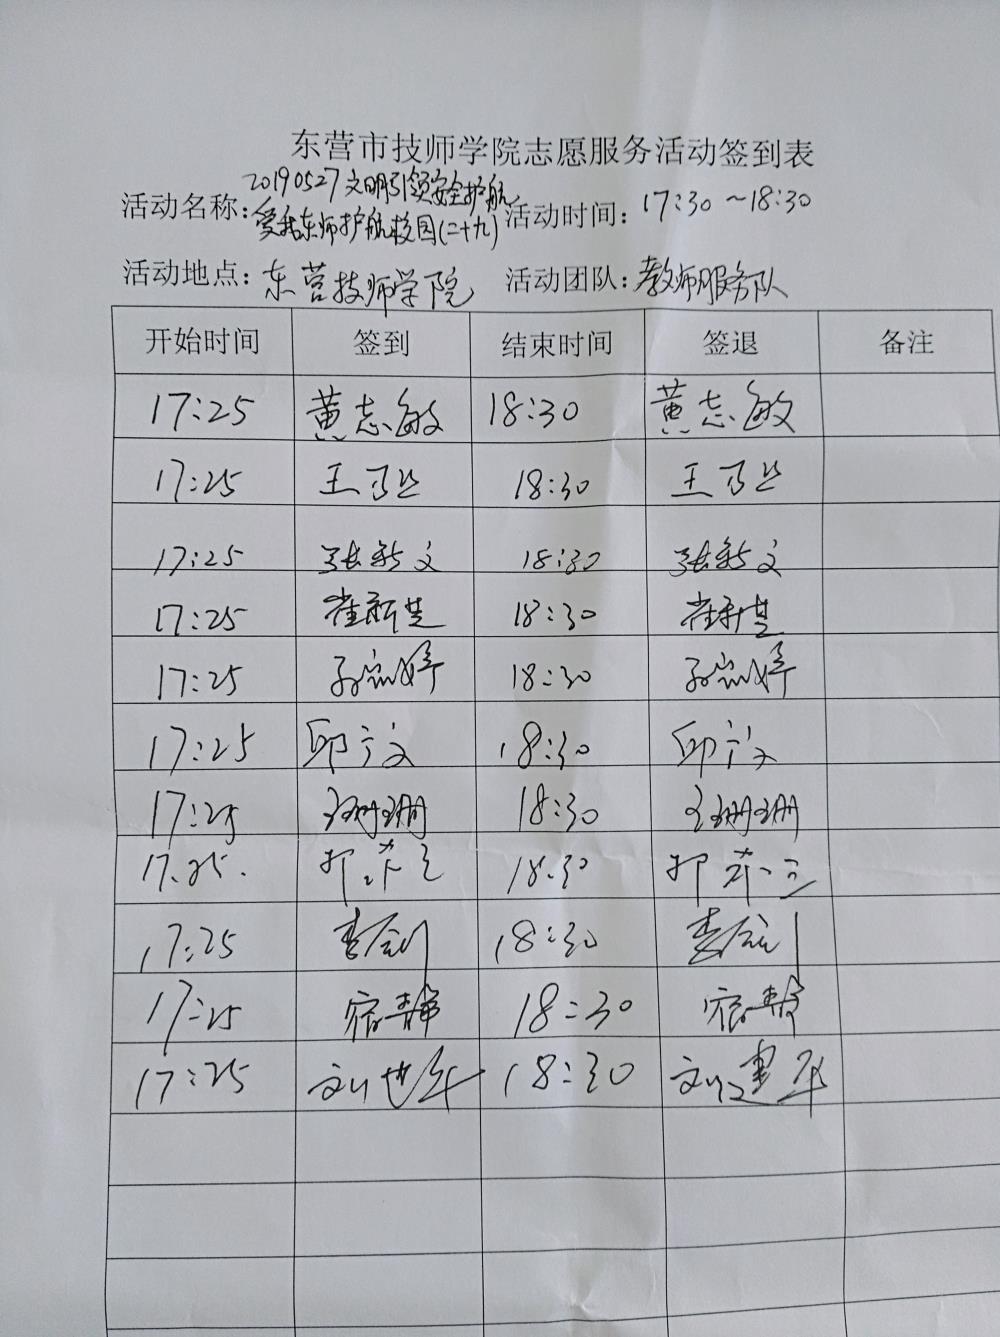 东营市技师学院志愿服务活动签到表
活动名称：20190527文明引领安全护航 活动时间：17:30～18:30
爱我东师护航校园(二十九)
活动地点：东营技师学院 活动团队：教师服务队
开始时间 签到 结束时间 签退 备注
17:25 黄志敏 18:30 黄志敏
17:25 王 18:30 王
17:25 张新文 18:30 张新文
17:25 崔新芝 18:30 崔新芝
17:25 孙 婷 18:30 孙 婷
17:25 邱 文 18:30 邱 文
17:25 王珊珊 18:30 王珊珊
17.25. 18:30
17:25 李剑 18:30 李剑
17:25 宿静 18:30 宿静
17:25 刘 18:30 刘建军